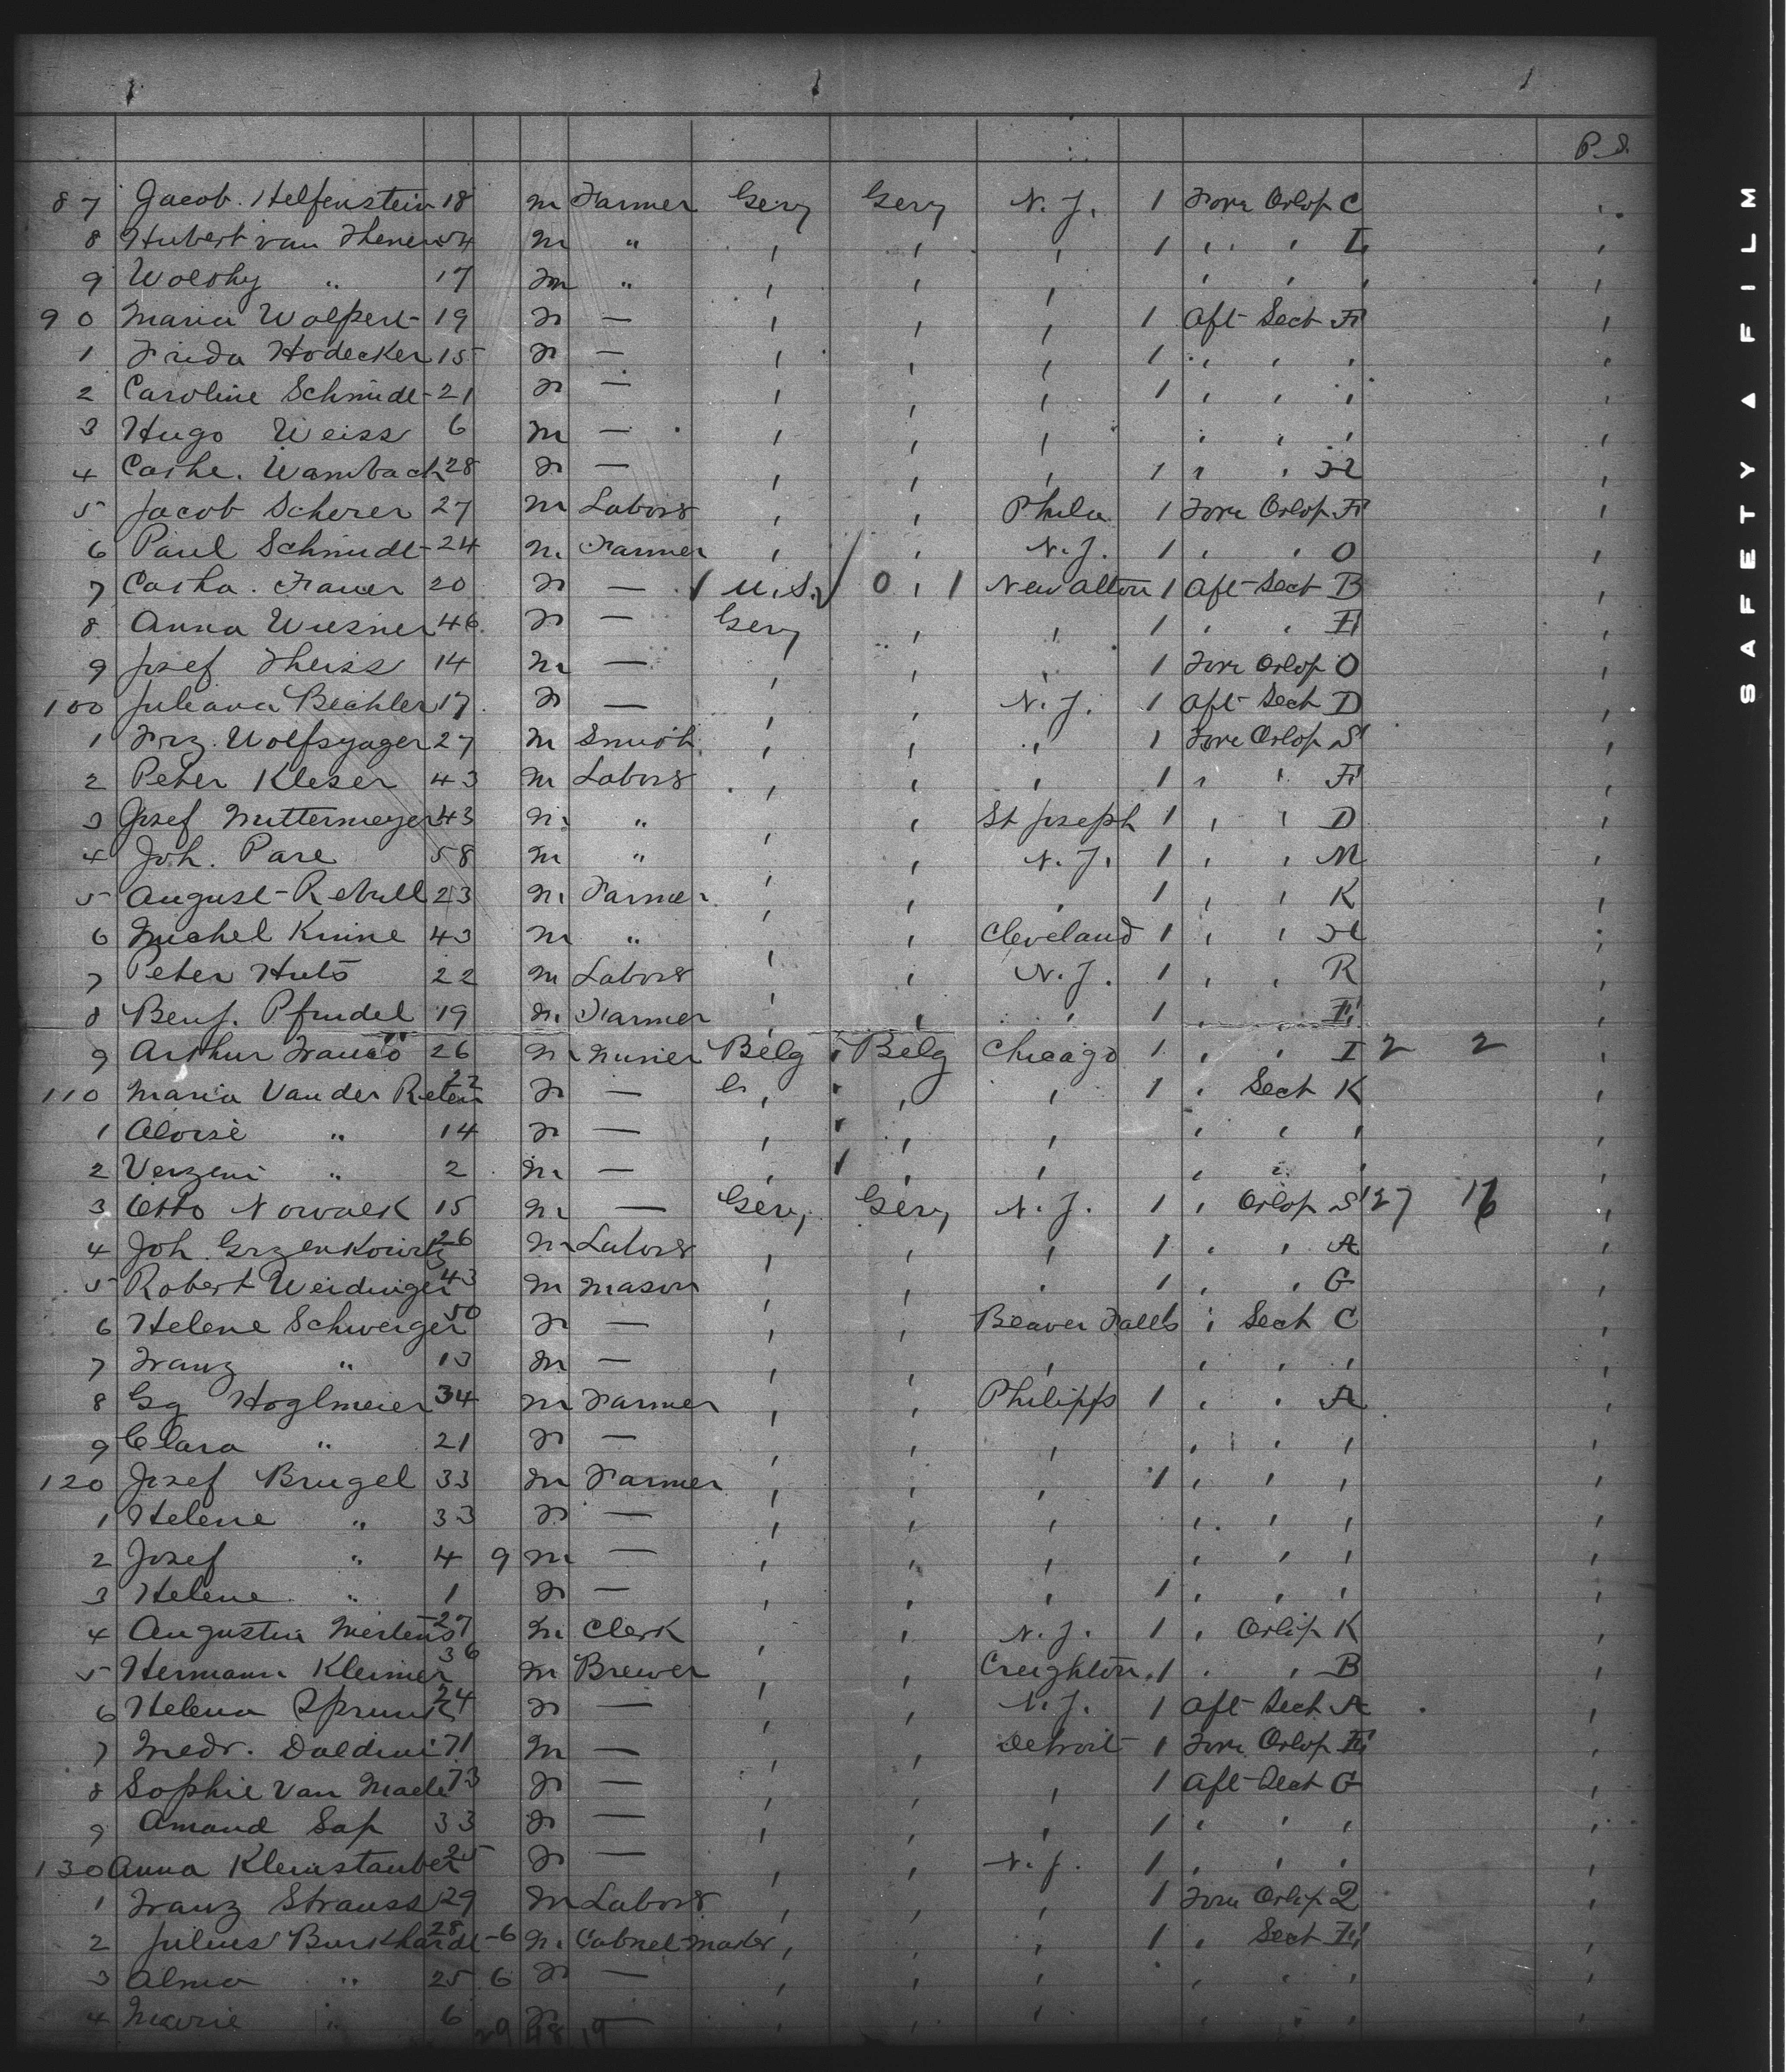 P.S.
87 Jacob. Helfenstein 18 m Farmer Gery Gery N.J. 1 Fore Orlop C
8 Hubert van Thenen 54 m " , , , 1 , , I
9 Wolshy " 17 m " , , , , , ,
90 Maria Wolpert 19 f — , , , 1 Aft Sect F
1 Frida Hodecker 15 f — , , , 1 , , ,
2 Caroline Schmidt 21 f — , , , 1 , , ,
3 Hugo Weiss 6 m — , , , , , ,
4 Cathe. Wambach 28 f — , , , 1 , , H
5 Jacob Scherer 27 m Labors , , Phila 1 Fore Orlop F
6 Paul Schmidt 24 m Farmer , , N.J. 1 , , O
7 Catha. Frauer 20 f — 1 U.S. 0 , 1 New Alton 1 Aft Sect B
8 Anna Wiesner 46 f — Gery , , 1 , , F
9 Josef Theiss 14 m — , , , 1 Fore Orlop O
100 Juliana Bechler 17 f — , , N.J. 1 Aft Sect D
1 Frz. Wolfsyager 27 m Smith , , , 1 Fore Orlop S
2 Peter Kleser 43 m Labors , , , 1 , , F
3 Josef Muttermeyer 43 m " , , St Joseph 1 , , D
4 Joh. Pare 58 m " , , N.J. 1 , , M
5 August Rebull 23 m Farmer , , , 1 , , K
6 Michel Knine 43 m " , , Cleveland 1 , , H
7 Peter Huts 22 m Labors , , N.J. 1 , , R
8 Benj. Pfundel 19 m Farmer , , , 1 , , F
9 Arthur Franco 26 m Musier Belg Belg Chicago 1 , , I 2 2
110 Maria Van der Reten 22 f — , , , 1 , Sect K
1 Aloise " 14 f — , , , , , ,
2 Verzeni " 2 m — , , , , , ,
3 Otto Nowack 15 m — Gery Gery N.J. 1 , Orlop S 127 16
4 Joh Grzenkowitz 26 m Labors , , , 1 , , A
5 Robert Weidinger 43 m Mason , , , 1 , , G
6 Helene Schweiger 50 f — , , Beaver Falls 1 Sect C
7 Franz " 13 m — , , , , , ,
8 Gg Hoglmeier 34 m Farmer , , Philipps 1 , , A
9 Clara " 21 f — , , , , , ,
120 Josef Brugel 33 m Farmer , , , 1 , , ,
1 Helene " 33 f — , , , , , ,
2 Josef " 4 9 m — , , , , , ,
3 Helene " 1 f — , , , 1 , , ,
4 Augustin Mertens 27 m Clerk , , N.J. 1 , Orlop K
5 Hermann Kleimer 36 m Brewer , , Creighton 1 , , B
6 Helena Sprunk 24 f — , , N.J. 1 Aft Sect A
7 Medr. Daldini 71 m — , , Detroit 1 Fore Orlop F
8 Sophie Van Maele 73 f — , , , 1 Aft Sect G
9 Amand Sap 33 f — , , , 1 , , ,
130 Anna Kleinstauber 25 f — , , N.J. 1 , , ,
1 Franz Strauss 29 m Labors , , , 1 Fore Orlop Q
2 Julius Burkhardt 28 6 m Cabnet Maker , , , 1 , Sect F
3 Alma " 25 6 f — , , , , , ,
4 Marie " 6 f — , , ,
29 48 19
SAFETY ▲ FILM